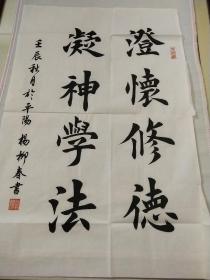 澄懷修德
凝神學法
壬辰秋月於平陽楊柳春書